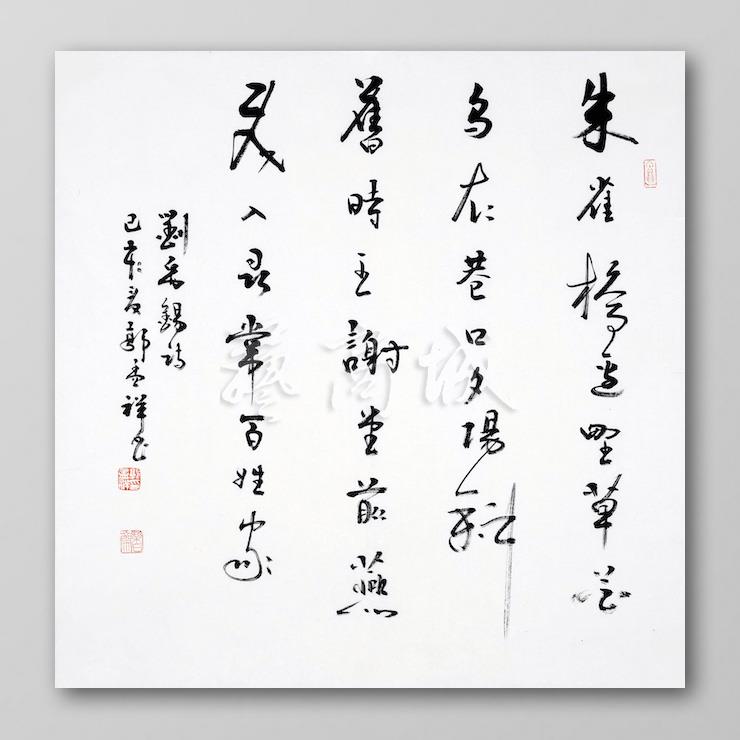 朱雀橋邊野草花
烏衣巷口夕陽斜
舊時王謝堂前燕
飛入尋常百姓家
劉禹錫詩
己亥夏鄭孟祥書
藝商城